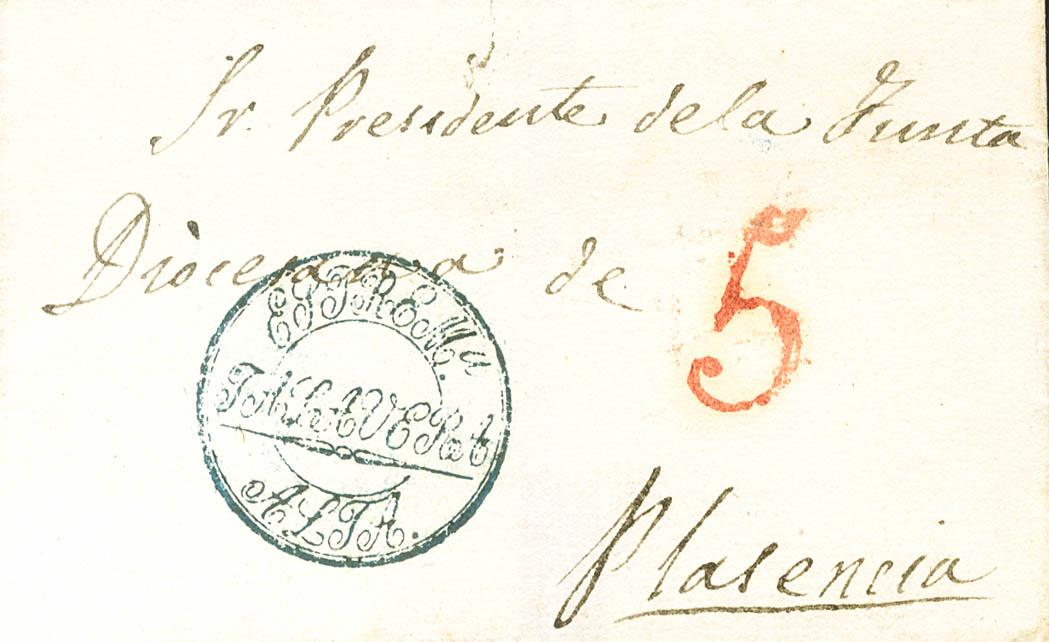 Sr. Presidente de la Junta
Diocesana de
5
ESTREM.a
TALAVERA
ALTA.
Plasencia